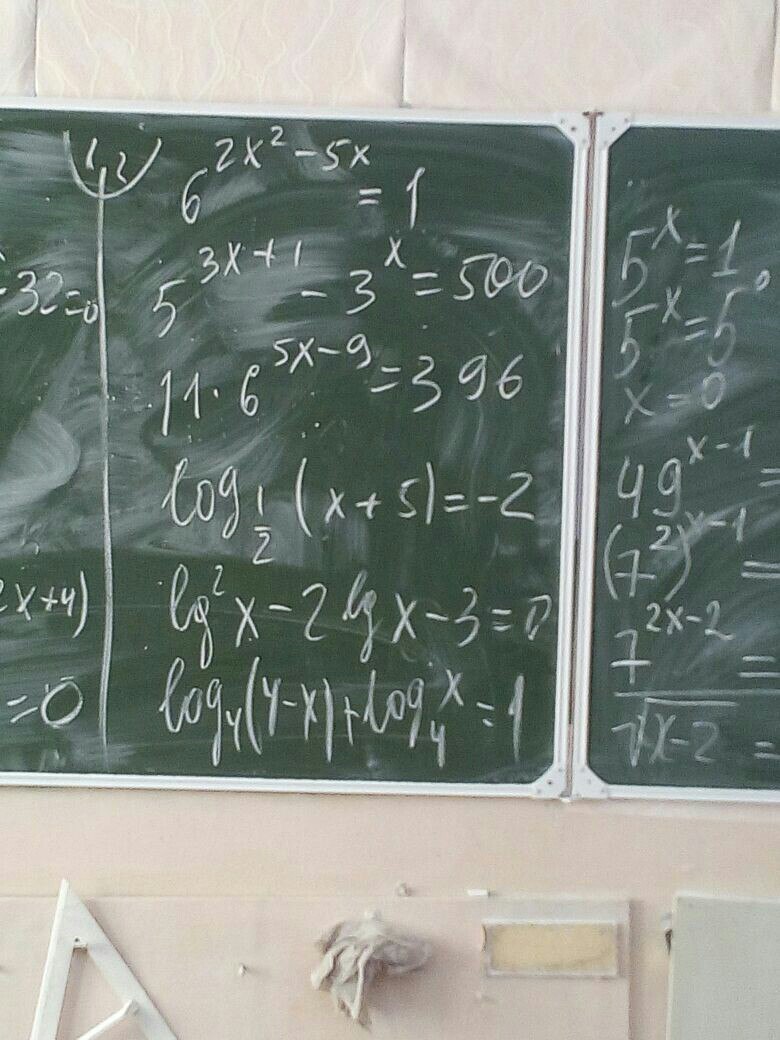 1 2
6^{2x²-5x} = 1
5^{3x+1} - 3^x = 500
11·6^{5x-9} = 396
log_{1/2} (x+5) = -2
lg²x - 2 lg x - 3 = 0
log_4(4-x) + log_4 x = 1
-32=0
2x+4)
=0
5^x = 1
5^x = 5^0
x = 0
49^{x-1} =
(7²)^{x-1} =
7^{2x-2} =
√x-2 =